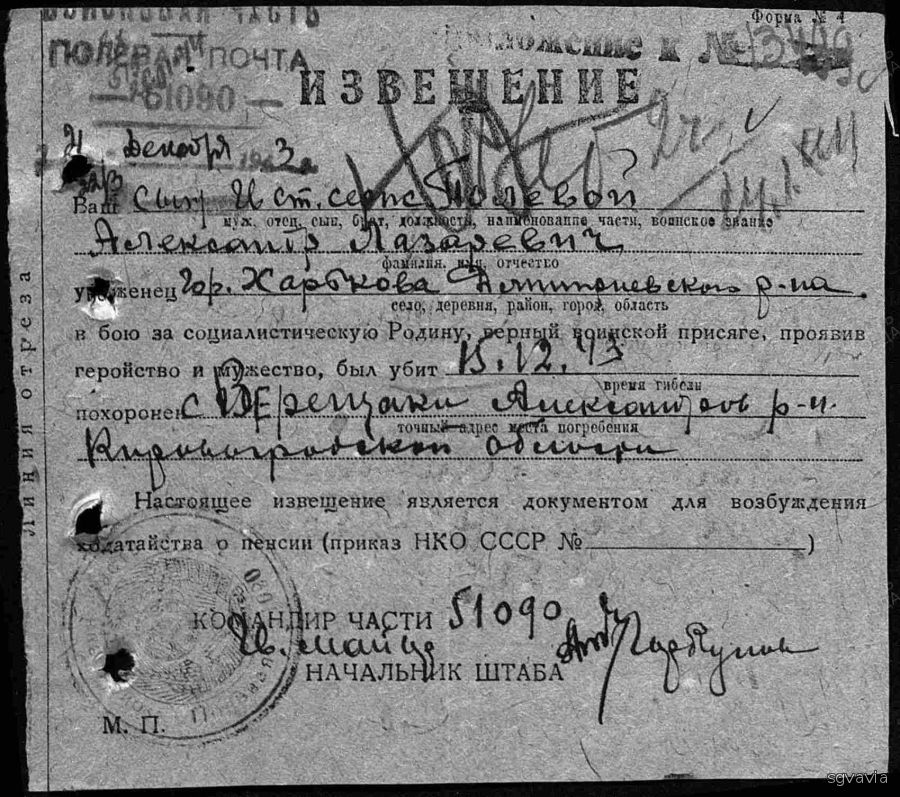 ВОИНСКАЯ ЧАСТЬ
Форма № 4
ПОЛЕВАЯ ПОЧТА
Приложение к №
— 51090 —
ИЗВЕЩЕНИЕ
21 Декабря 1943 г
Ваш сын Гв. ст. серж. Полевой
муж, отец, сын, брат, должность, наименование части, воинское звание
Александр Лазаревич
фамилия, имя, отчество
уроженец Гор. Харькова р-на
село, деревня, район, город, область
в бою за социалистическую Родину, верный воинской присяге, проявив
геройство и мужество, был убит 15.12.43
время гибели
похоронен с Верещаки Александров р-н.
точный адрес места погребения
Кировоградской области
Настоящее извещение является документом для возбуждения
ходатайства о пенсии (приказ НКО СССР № )
КОМАНДИР ЧАСТИ 51090
Гв. майор Горбунов
НАЧАЛЬНИК ШТАБА
М. П.
Линия отреза
sgvavia